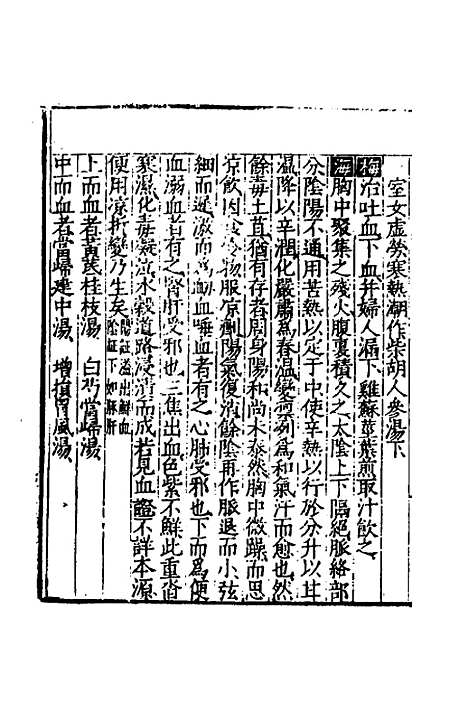 室女虛勞寒熱潮作柴胡人參湯下
梅治吐血下血并婦人漏下雞蘇莖葉煎取汁飲之
海胸中聚集之殘火腹裏積久之太陰上下隔絕脈絡部
分陰陽不通用苦熱以定于中使辛熱以行於分升以甘
溫降以辛潤化嚴肅爲春溫變凜冽爲和氣汗而愈也然
餘毒土苴猶有存者周身陽和尚未泰然胸中微躁而思
涼飲因食冷物服涼劑陽氣復消餘陰再作脈退而小弦
細而遲激而爲衄血唾血者有之心肺受邪也下而爲便
血溺血者有之腎肝受邪也三焦出血色紫不鮮此重沓
寒濕化毒凝泣水穀道路浸漬而成若見血證不詳本源
便用涼折變乃生矣陽證溢出鮮血陰證下如豚肝
上而血者黃芪桂枝湯 白芍當歸湯
中而血者當歸建中湯 增損胃風湯